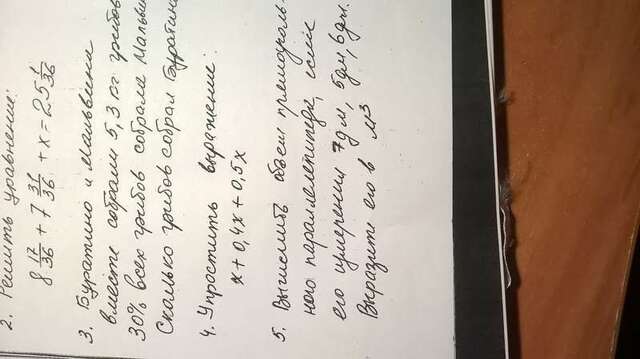 2. Решить уравнение:
8 17/36 + 7 31/36 + x = 25 1/36
3. Буратино и Мальвина
вместе собрали 5,3 кг грибов
30% всех грибов собрала Мальви
Сколько грибов собрал Буратин
4. Упростить выражение:
x + 0,4x + 0,5x
5. Вычислить объем прямоуголь-
ного параллелепипеда, если
его измерения 7дм, 5дм, 6дм.
Выразите его в м³